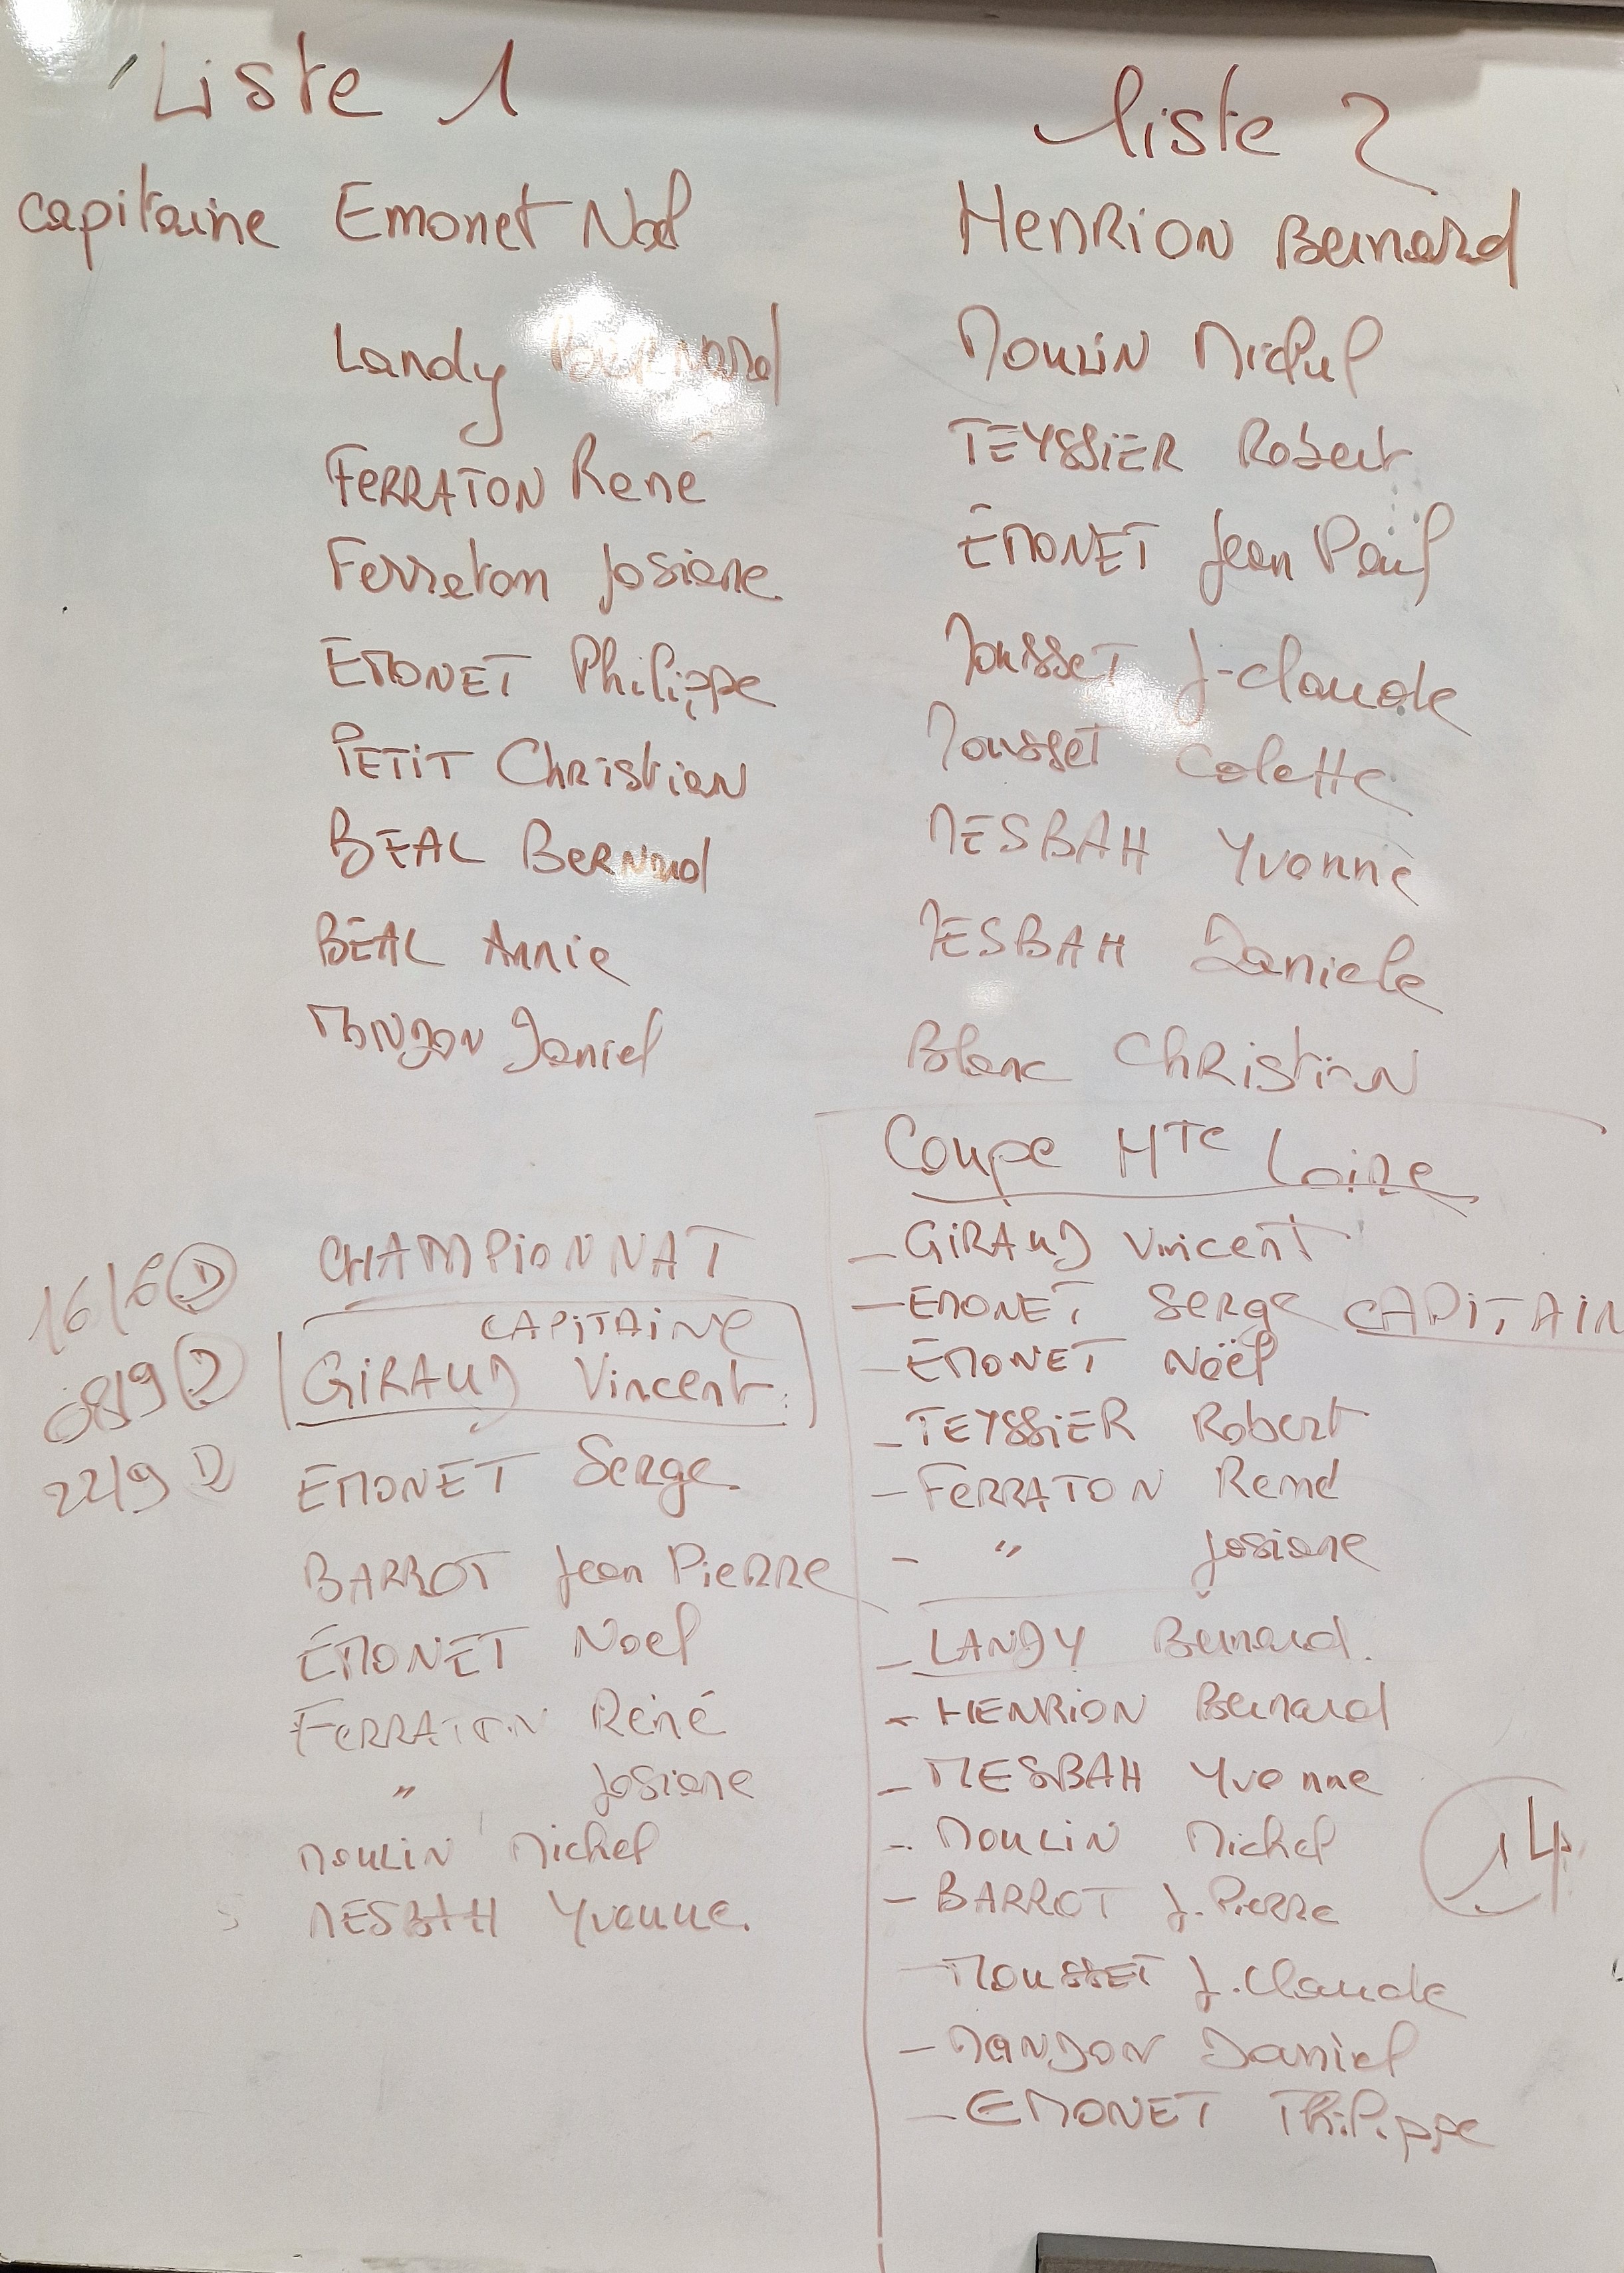 Liste 1
capitaine Emonet Noel
Landy Bernard
FERRATON René
Ferraton Josiane
EMONET Philippe
PETIT Christian
BEAL Bernard
BEAL Annie
MANDON Daniel
liste 2
HENRION Bernard
MOULIN Michel
TEYSSIER Robert
EMONET Jean Paul
MOUSSET J-claude
Mousset Colette
MESBAH Yvonne
MESBAH Daniele
Blanc Christian
CHAMPIONNAT
16/6 D
CAPITAINE
08/9 D
GIRAUD Vincent
22/9 D
EMONET Serge
BARROT Jean Pierre
EMONET Noel
FERRATON René
" Josiane
MOULIN Michel
MESBAH Yvonne
Coupe Hte Loire
- GIRAUD Vincent
- EMONET Serge CAPITAIN
- EMONET Noël
- TEYSSIER Robert
- FERRATON René
- " Josiane
- LANDY Bernard.
- HENRION Bernard
- MESBAH Yvonne
- MOULIN Michel
- BARROT J. Pierre
- MOUSSET J. Claude
- MANDON Daniel
- EMONET Philippe
14